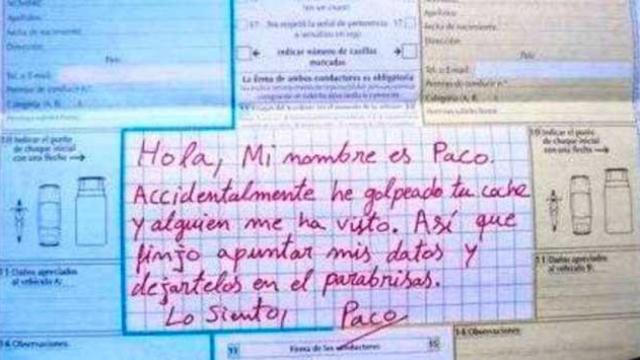 Apellidos:
Fecha de nacimiento:
Dirección:
País:
Tel. o E-mail:
Permiso de conducir n.º:
Categoría (A, B,
(en un cruce)
17 No respetó la señal de preferencia 17
o semáforo en rojo
indicar número de casillas
marcadas
La firma de ambos conductores es obligatoria
Apellidos:
Fecha de nacimiento:
Dirección:
País:
Tel. o E-mail:
Permiso de conducir n.º:
Categoría (A, B,
10 Indicar el punto
de choque inicial
con una flecha
Hola, Mi nombre es Paco.
Accidentalmente he golpeado tu coche
y alguien me ha visto. Así que
finjo apuntar mis datos y
dejartelos en el parabrisas.
Lo Siento, Paco
10 Indicar el punto
de choque inicial
con una flecha
11 Daños apreciados
al vehículo A:
11 Daños apreciados
al vehículo B:
14 Observaciones:
15 Firma de los conductores 15
14 Observaciones: